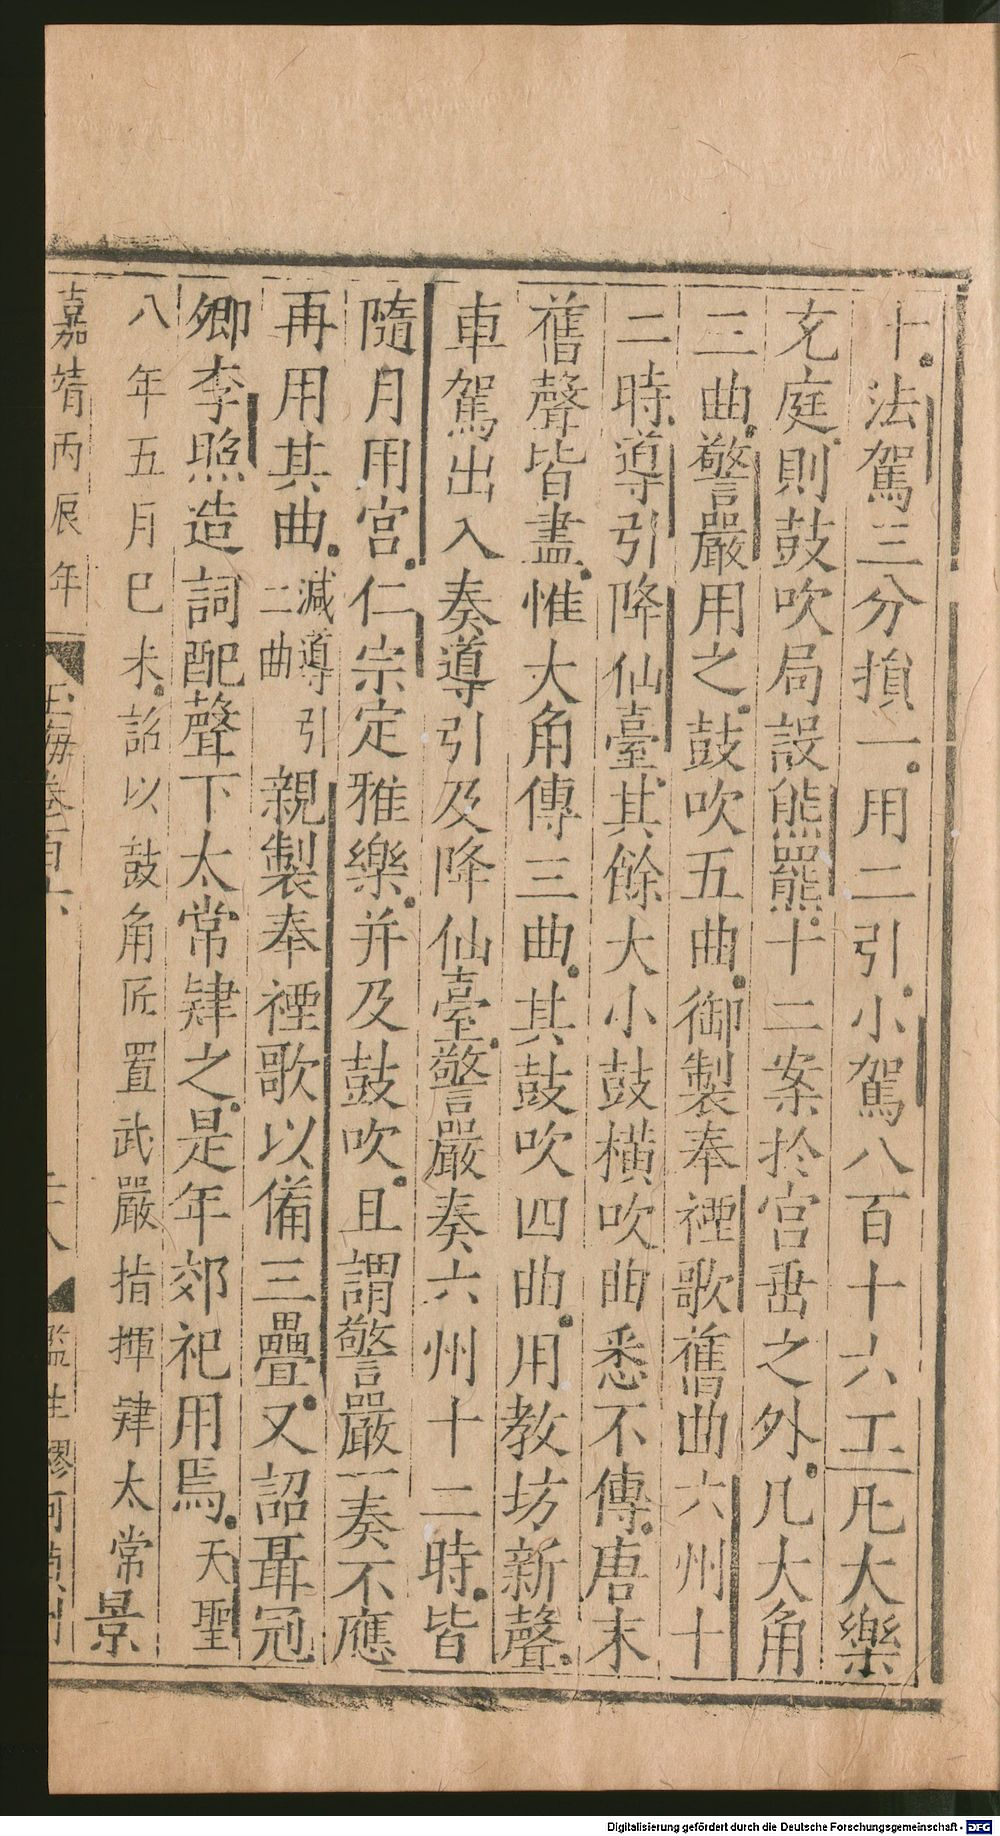 十法駕三分損一用二引小駕八百十六工凡大樂
充庭則鼓吹局設熊羆十二案於宫壼之外凡大角
三曲警嚴用之鼓吹五曲御製奉禋歌舊曲六州十
二時導引降仙臺其餘大小鼓橫吹曲悉不傳唐末
舊聲皆盡惟大角傳三曲其鼓吹四曲用教坊新聲
車駕出入奏導引及降仙臺警嚴奏六州十二時皆
隨月用宫仁宗定雅樂并及鼓吹且謂警嚴一奏不應
再用其曲減導引二曲親製奉禋歌以備三疊又詔聶冠
卿李照造詞配聲下太常肄之是年郊祀用焉天聖
八年五月巳未詔以鼓角匠置武嚴指揮肄太常景
嘉靖丙辰年
玉海卷百六
二十八
監生繆河
Digitalisierung gefördert durch die Deutsche Forschungsgemeinschaft - DFG